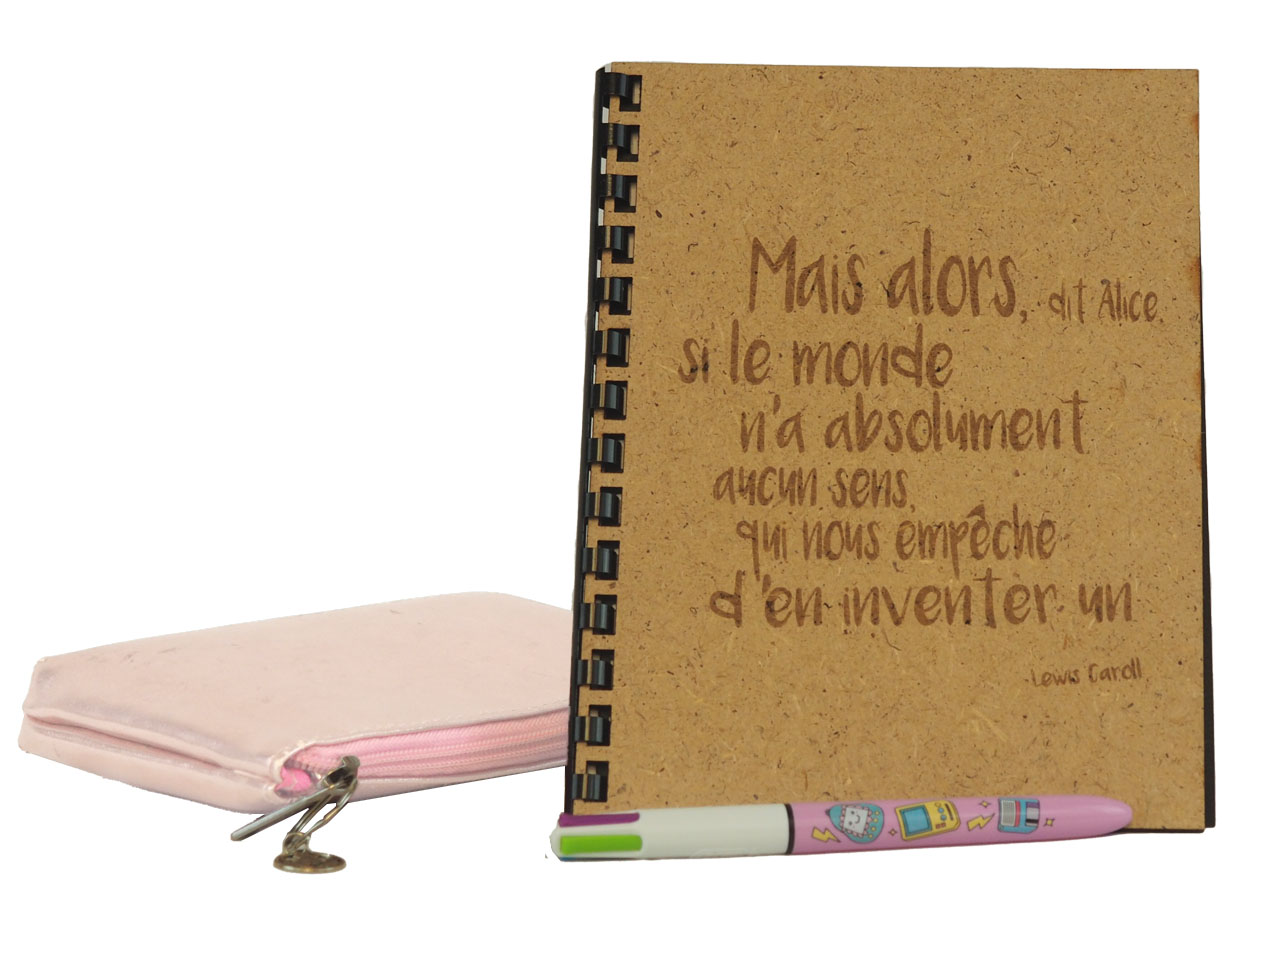 Mais alors, dit Alice,
si le monde
n'a absolument
aucun sens,
qui nous empêche
d'en inventer un
Lewis Caroll